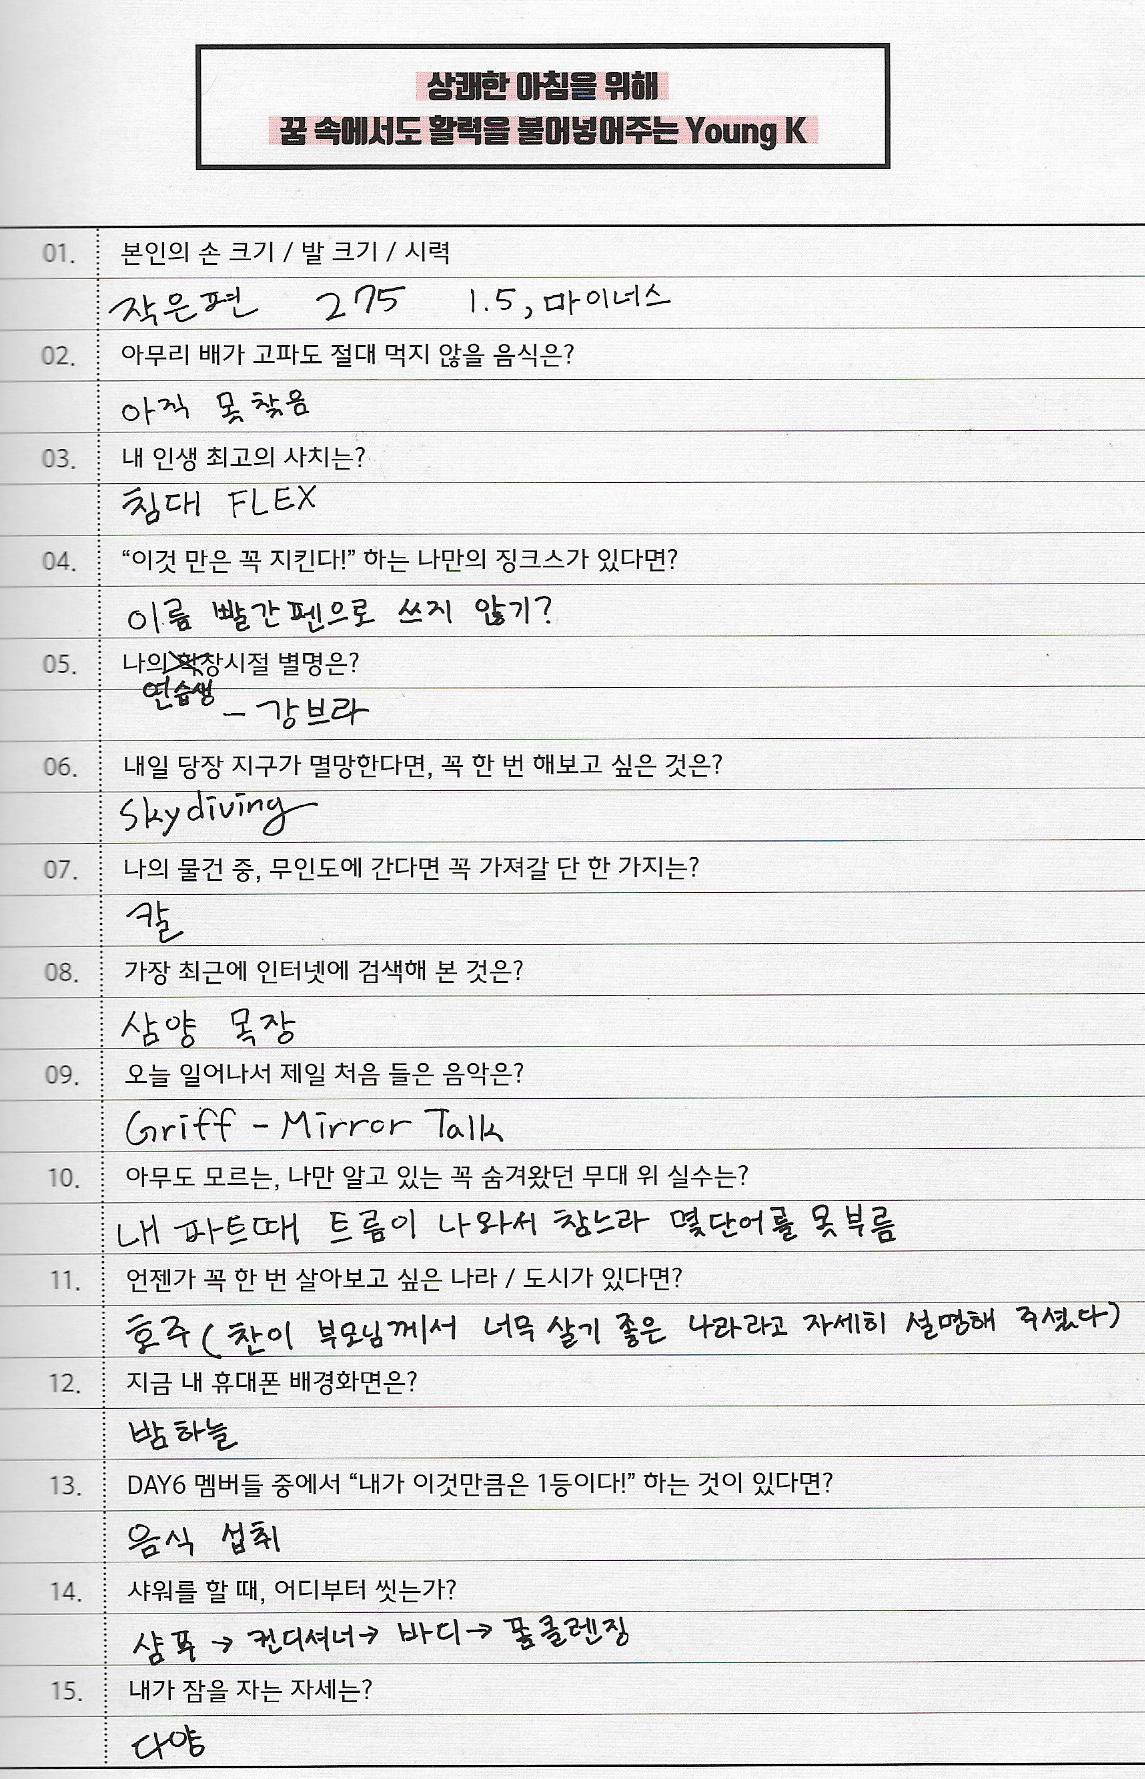 상쾌한 아침을 위해
꿈 속에서도 활력을 불어넣어주는 Young K
01. 본인의 손 크기 / 발 크기 / 시력
작은편 275 1.5, 마이너스
02. 아무리 배가 고파도 절대 먹지 않을 음식은?
아직 못찾음
03. 내 인생 최고의 사치는?
침대 FLEX
04. “이것 만은 꼭 지킨다!” 하는 나만의 징크스가 있다면?
이름 빨간펜으로 쓰지 않기?
05. 나의 학창시절 별명은?
연습생 - 강브라
06. 내일 당장 지구가 멸망한다면, 꼭 한 번 해보고 싶은 것은?
Skydiving
07. 나의 물건 중, 무인도에 간다면 꼭 가져갈 단 한 가지는?
칼
08. 가장 최근에 인터넷에 검색해 본 것은?
삼양 목장
09. 오늘 일어나서 제일 처음 들은 음악은?
Griff - Mirror Talk
10. 아무도 모르는, 나만 알고 있는 꼭 숨겨왔던 무대 위 실수는?
내 파트때 트름이 나와서 참느라 몇단어를 못부름
11. 언젠가 꼭 한 번 살아보고 싶은 나라 / 도시가 있다면?
호주 (찬이 부모님께서 너무 살기 좋은 나라라고 자세히 설명해 주셨다)
12. 지금 내 휴대폰 배경화면은?
밤하늘
13. DAY6 멤버들 중에서 “내가 이것만큼은 1등이다!” 하는 것이 있다면?
음식 섭취
14. 샤워를 할 때, 어디부터 씻는가?
샴푸 → 컨디셔너 → 바디 → 폼클렌징
15. 내가 잠을 자는 자세는?
다양